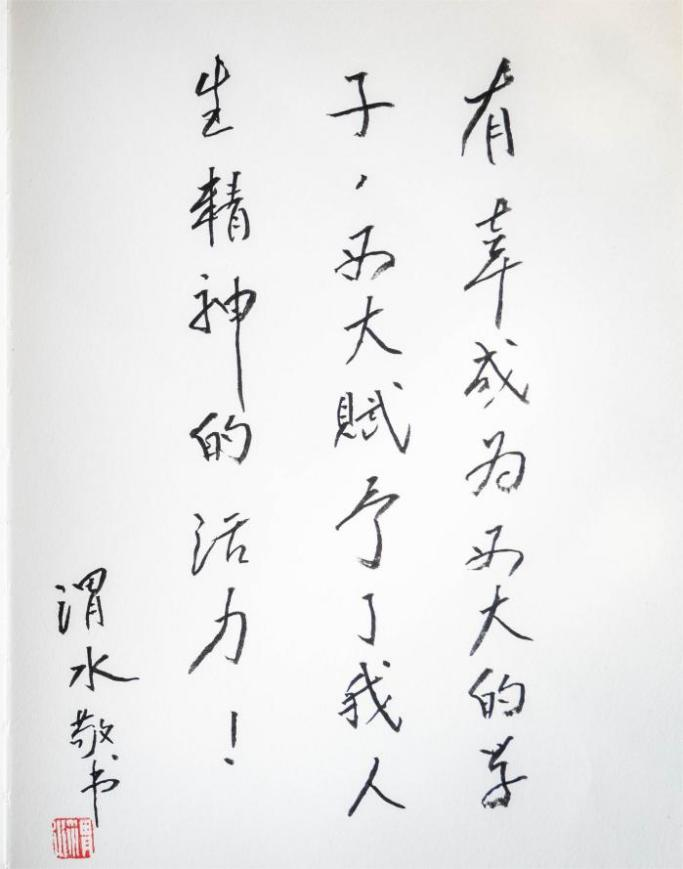 有幸成为西大的学
子，西大赋予了我人
生精神的活力！
渭水敬书